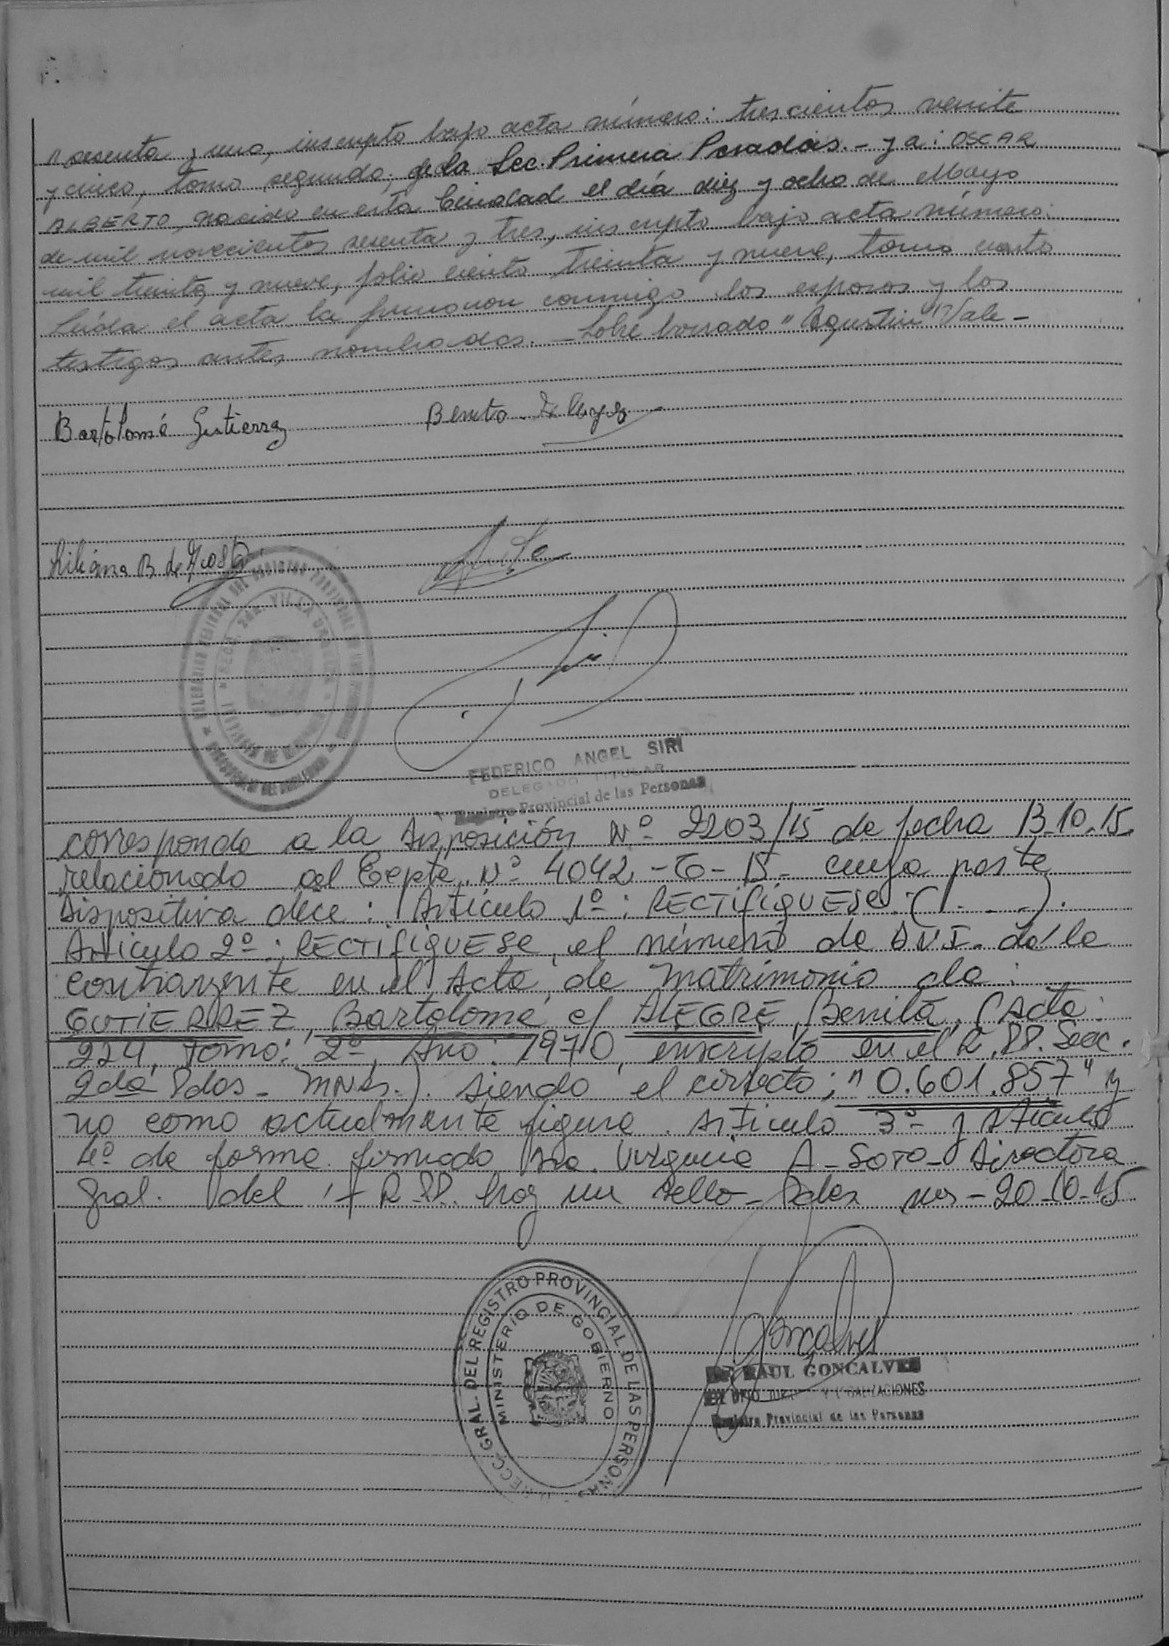 sesenta y uno, inscripto bajo acta número: trescientos veinte
y cinco, tomo segundo, de la Sec. Primera Posadas.- y a: OSCAR
ALBERTO, nacido en esta Ciudad el día diez y ocho de Mayo
de mil novecientos sesenta y tres, inscripto bajo acta número:
mil treinta y nueve, folio ciento treinta y nueve, tomo cuarto
Leída el acta la firmaron conmigo los esposos y los
testigos antes nombrados. - Sobre borrado "Agustin" Vale -
Bartolomé Gutierrez
Benita
Liliana B. de
FEDERICO ANGEL SIRI
DELEGADO TITULAR
Registro Provincial de las Personas
corresponde a la Disposición Nº 2203/15 de fecha 13.10.15
relacionado al Expte Nº 4042 - G - 15 - cuya parte
Dispositiva dice: Artículo 1º: RECTIFIQUESE: (. . .).
Artículo 2º: RECTIFIQUESE, el número de D.N.I. de la
contrayente en el Acta de matrimonio de:
GUTIERREZ, Bartolome c/ ALEGRE, Benita, (Acta:
224, Tomo: 2º, Año: 1970, inscripto en el R.PP. Secc.
2da Pdas - MNES.). siendo el correcto; "0.601.857" y
no como actualmente figura. Artículo 3º y Artículo
4º de forma firmado Dra. Virginia A - SOTO - Directora
Gral. del R.PP. hay un sello - Pdas mes - 20-10-15
DIRECC. GRAL. DEL REGISTRO PROVINCIAL DE LAS PERSONAS
MINISTERIO DE GOBIERNO
Goncalves
Dr. RAUL GONCALVES
Registro Provincial de las Personas